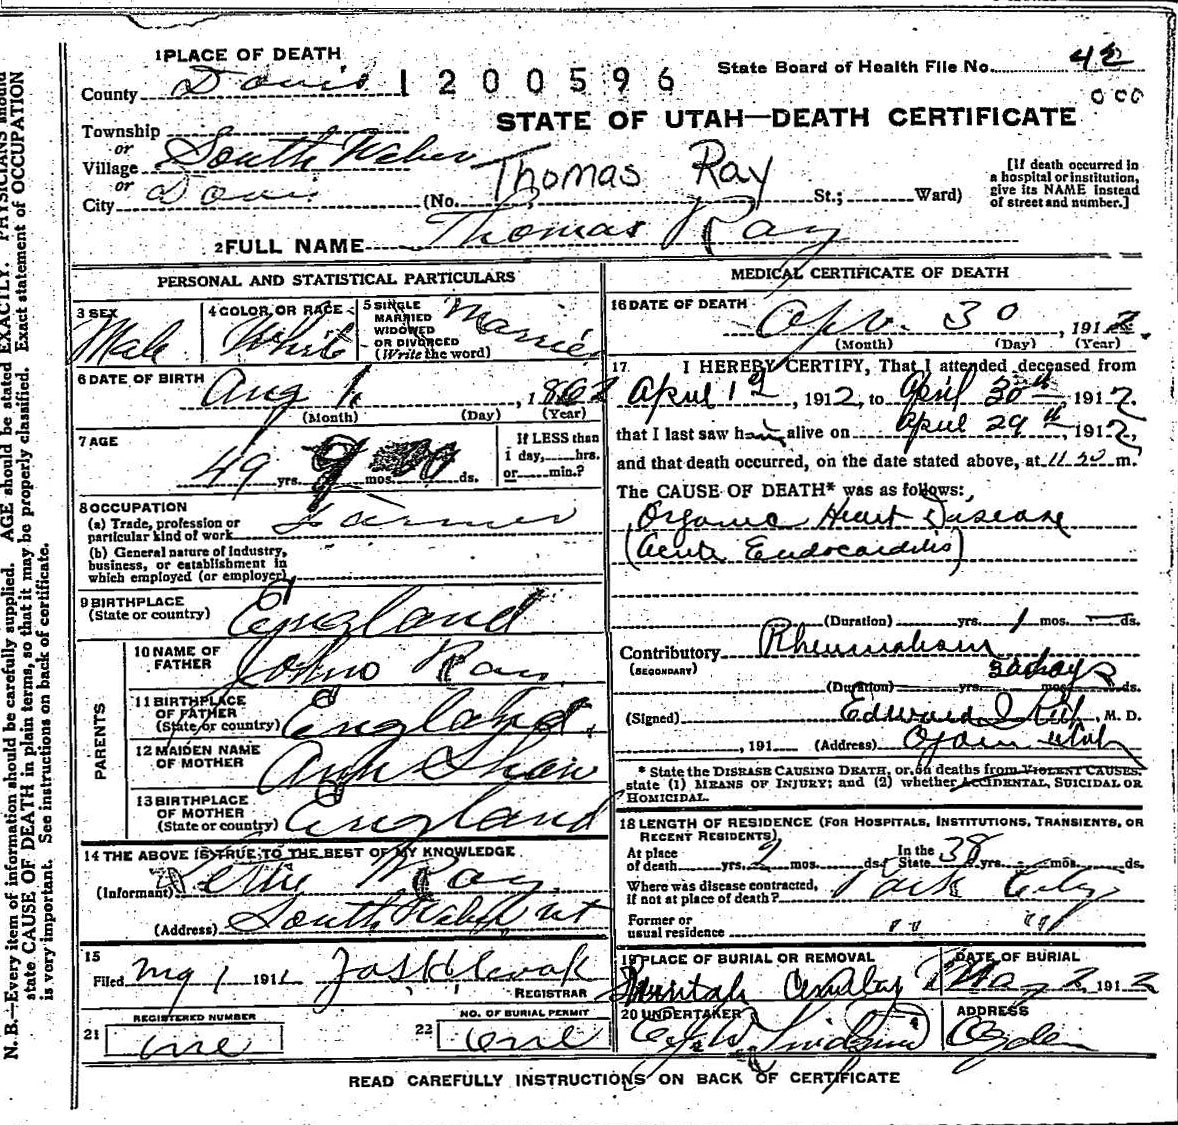 1 PLACE OF DEATH
County Davis
1200596
State Board of Health File No. 42
000
STATE OF UTAH—DEATH CERTIFICATE
Township
or
Village South Weber
or
City Davis
(No. Thomas Ray St.; Ward)
[If death occurred in
a hospital or institution,
give its NAME instead
of street and number.]
2 FULL NAME Thomas Ray
PERSONAL AND STATISTICAL PARTICULARS
3 SEX
Male
4 COLOR OR RACE
White
5 SINGLE
MARRIED
WIDOWED
OR DIVORCED
(Write the word)
Married
6 DATE OF BIRTH
Aug 1, 1862
(Month) (Day) (Year)
7 AGE
49 yrs. 9 mos. ds.
If LESS than
1 day, hrs.
or min.?
8 OCCUPATION
(a) Trade, profession or
particular kind of work Farmer
(b) General nature of industry,
business, or establishment in
which employed (or employer)
9 BIRTHPLACE
(State or country) England
PARENTS
10 NAME OF
FATHER John Ray
11 BIRTHPLACE
OF FATHER
(State or country) England
12 MAIDEN NAME
OF MOTHER Ann Shaw
13 BIRTHPLACE
OF MOTHER
(State or country) England
14 THE ABOVE IS TRUE TO THE BEST OF MY KNOWLEDGE
(Informant) Ray
(Address) South Weber Ut
15
Filed May 1 191
REGISTRAR
21
REGISTERED NUMBER
one
22
NO. OF BURIAL PERMIT
one
MEDICAL CERTIFICATE OF DEATH
16 DATE OF DEATH
Apr. 30, 1912.
(Month) (Day) (Year)
17 I HEREBY CERTIFY, That I attended deceased from
April 1st, 1912, to April 30th 1912.
that I last saw him alive on April 29th, 1912,
and that death occurred, on the date stated above, at 11-20 m.
The CAUSE OF DEATH* was as follows:
Organic Heart Disease
(acute Endocarditis)
(Duration) yrs. 1 mos. ds.
Contributory Rheumatism
(SECONDARY)
(Duration) yrs. mos. days ds.
(Signed) Edward I Rich, M. D.
, 191 (Address) Ogden Utah
* State the DISEASE CAUSING DEATH, or on deaths from VIOLENT CAUSES,
state (1) MEANS OF INJURY; and (2) whether ACCIDENTAL, SUICIDAL OR
HOMICIDAL.
18 LENGTH OF RESIDENCE (FOR HOSPITALS, INSTITUTIONS, TRANSIENTS, OR
RECENT RESIDENTS)
At place
of death yrs. 2 mos. ds.
In the
State 38 yrs. mos. ds.
Where was disease contracted,
if not at place of death? Park City
Former or
usual residence " "
19 PLACE OF BURIAL OR REMOVAL
Uintah
DATE OF BURIAL
May 2, 1912
20 UNDERTAKER
Lindquist
ADDRESS
Ogden
READ CAREFULLY INSTRUCTIONS ON BACK OF CERTIFICATE
N. B.—Every item of information should be carefully supplied. AGE should be stated EXACTLY. PHYSICIANS should
state CAUSE OF DEATH in plain terms, so that it may be properly classified. Exact statement of OCCUPATION
is very important. See instructions on back of certificate.